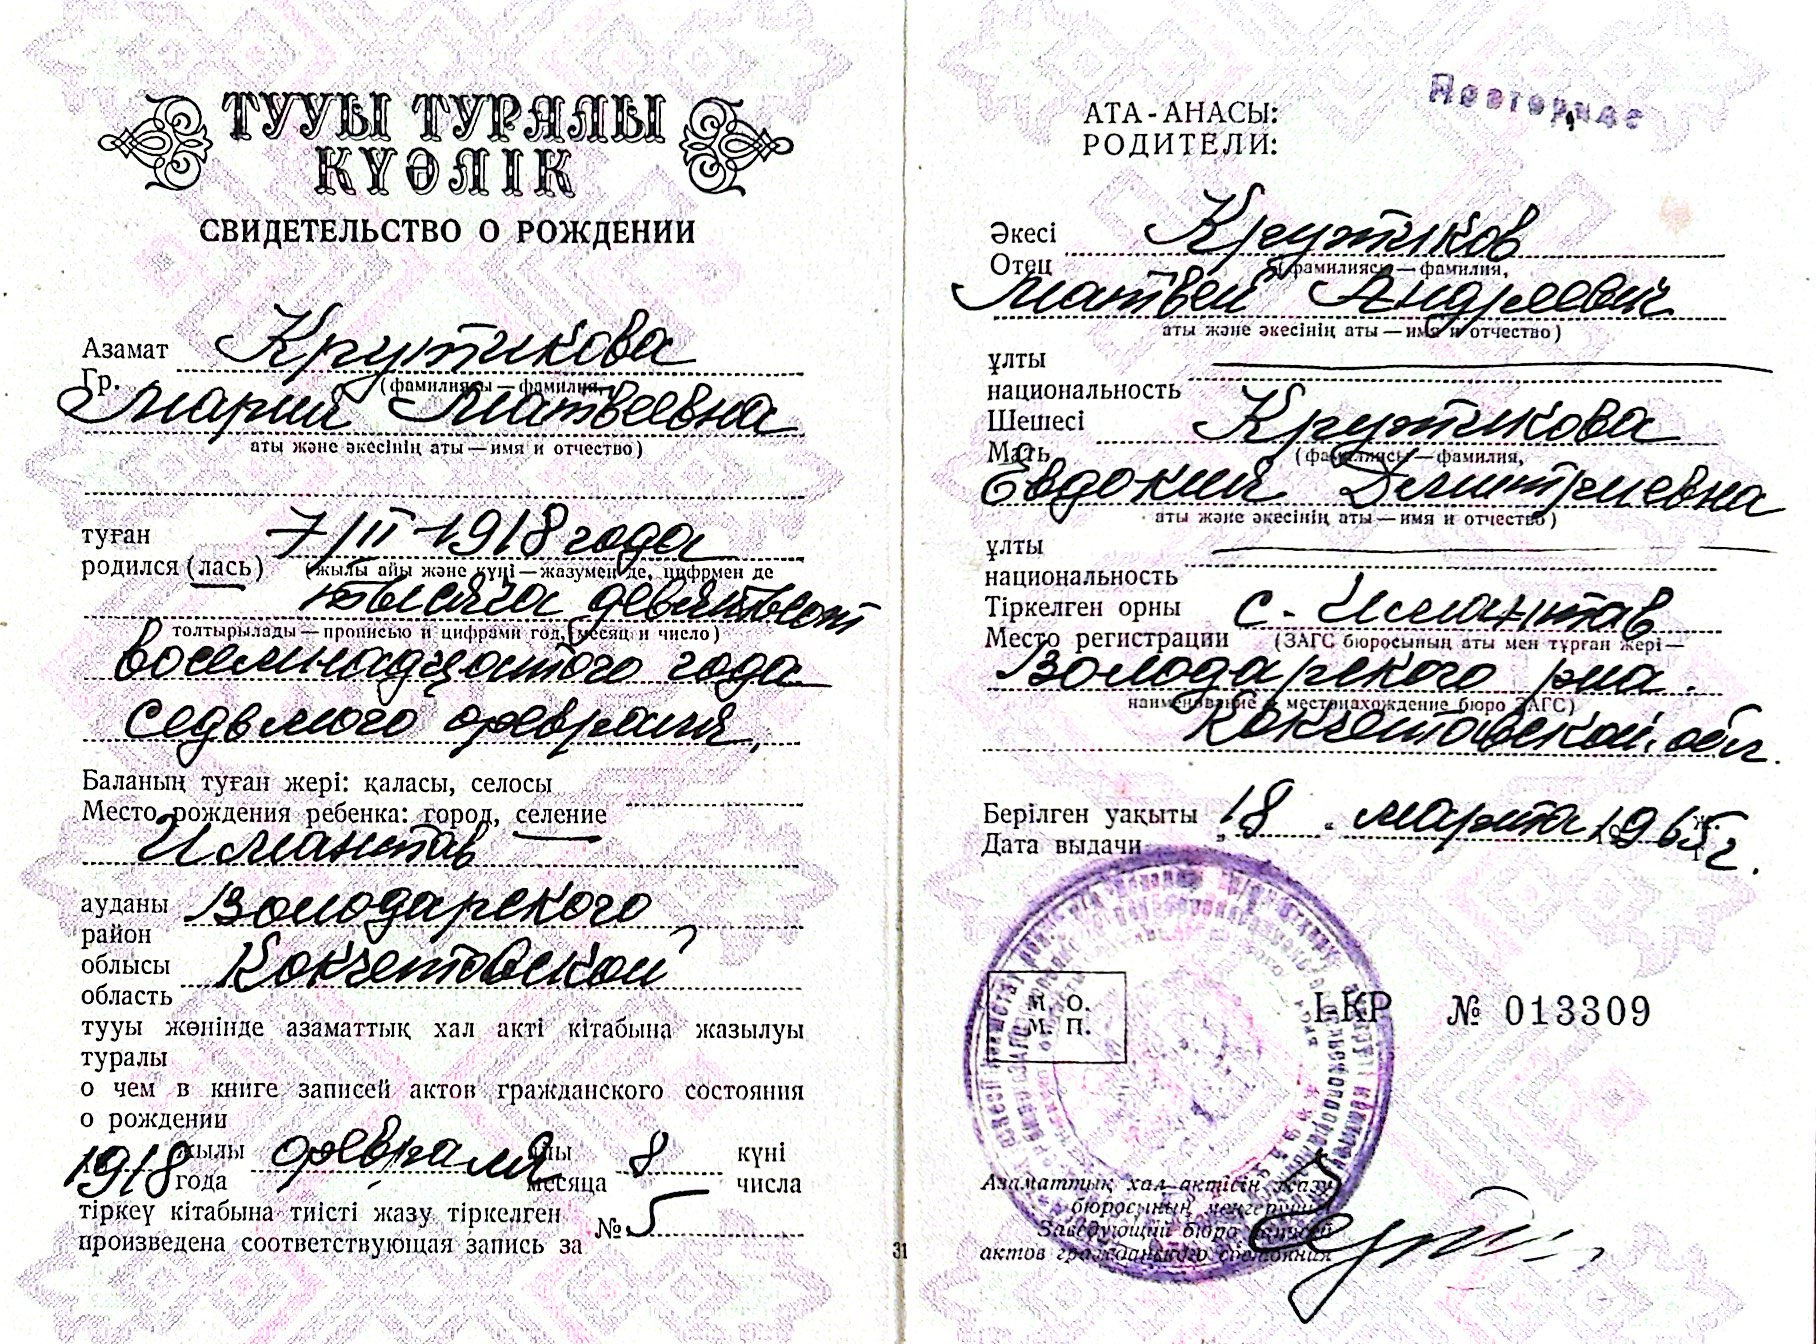 ТУУЫ ТУРАЛЫ
КУӘЛІК
СВИДЕТЕЛЬСТВО О РОЖДЕНИИ
Азамат Крутикова
Гр. (фамилиясы — фамилия,
Мария Матвеевна
аты және әкесінің аты — имя и отчество)
туған 7/II-1918 года
родился (лась) (жылы айы және күні — жазумен де, цифрмен де
тысяча девятьсот
толтырылады — прописью и цифрами год, месяц и число)
восемнадцатого года
седьмого февраля,
Баланың туған жері: қаласы, селосы
Место рождения ребенка: город, селение
Имантав
ауданы Володарского
район
облысы Кокчетавской
область
тууы жөнінде азаматтық хал акті кітабына жазылуы
туралы
о чем в книге записей актов гражданского состояния
о рождении
1918 жылы февраля айы 8 күні
года месяца числа
тіркеу кітабына тиісті жазу тіркелген
произведена соответствующая запись за № 5
31
Повторное
АТА-АНАСЫ:
РОДИТЕЛИ:
Әкесі Крутиков
Отец (фамилиясы — фамилия,
Матвей Андреевич
аты және әкесінің аты — имя и отчество)
ұлты
национальность
Шешесі Крутикова
Мать (фамилиясы — фамилия,
Евдокия Дмитриевна
аты және әкесінің аты — имя и отчество)
ұлты
национальность
Тіркелген орны с. Имантав
Место регистрации (ЗАГС бюросының аты мен тұрған жері —
Володарского р-на.
наименование и местонахождение бюро ЗАГС)
Кокчетавской обл.
Берілген уақыты „18“ марта 1965 г.
Дата выдачи
М. О.
М. П.
I-КР № 013309
Азаматтық хал актісін жазу
бюросының меңгерушісі
Заведующий бюро записей
актов гражданского состояния